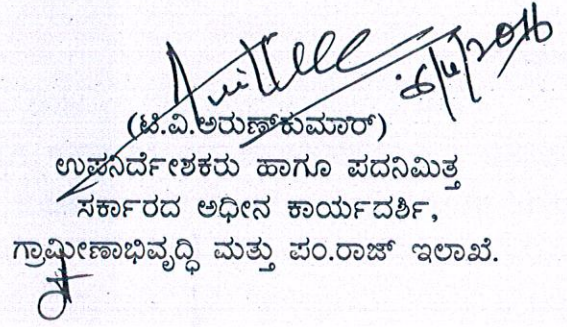 6/4/2016
(ಟಿ.ವಿ.ಅರುಣ್‌ಕುಮಾರ್)
ಉಪನಿರ್ದೇಶಕರು ಹಾಗೂ ಪದನಿಮಿತ್ತ
ಸರ್ಕಾರದ ಅಧೀನ ಕಾರ್ಯದರ್ಶಿ,
ಗ್ರಾಮೀಣಾಭಿವೃದ್ಧಿ ಮತ್ತು ಪಂ.ರಾಜ್ ಇಲಾಖೆ.